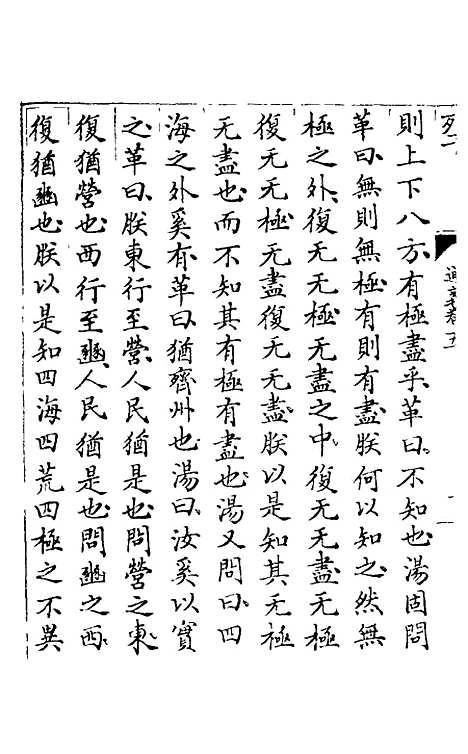 則上下八方有極盡乎革曰不知也湯固問
革曰無則無極有則有盡朕何以知之然無
極之外復无无極无盡之中復无无盡无極
復无无極无盡復无无盡朕以是知其无極
无盡也而不知其有極有盡也湯又問曰四
海之外奚有革曰猶齊州也湯曰汝奚以實
之革曰朕東行至營人民猶是也問營之東
復猶營也西行至豳人民猶是也問豳之西
復猶豳也朕以是知四海四荒四極之不異